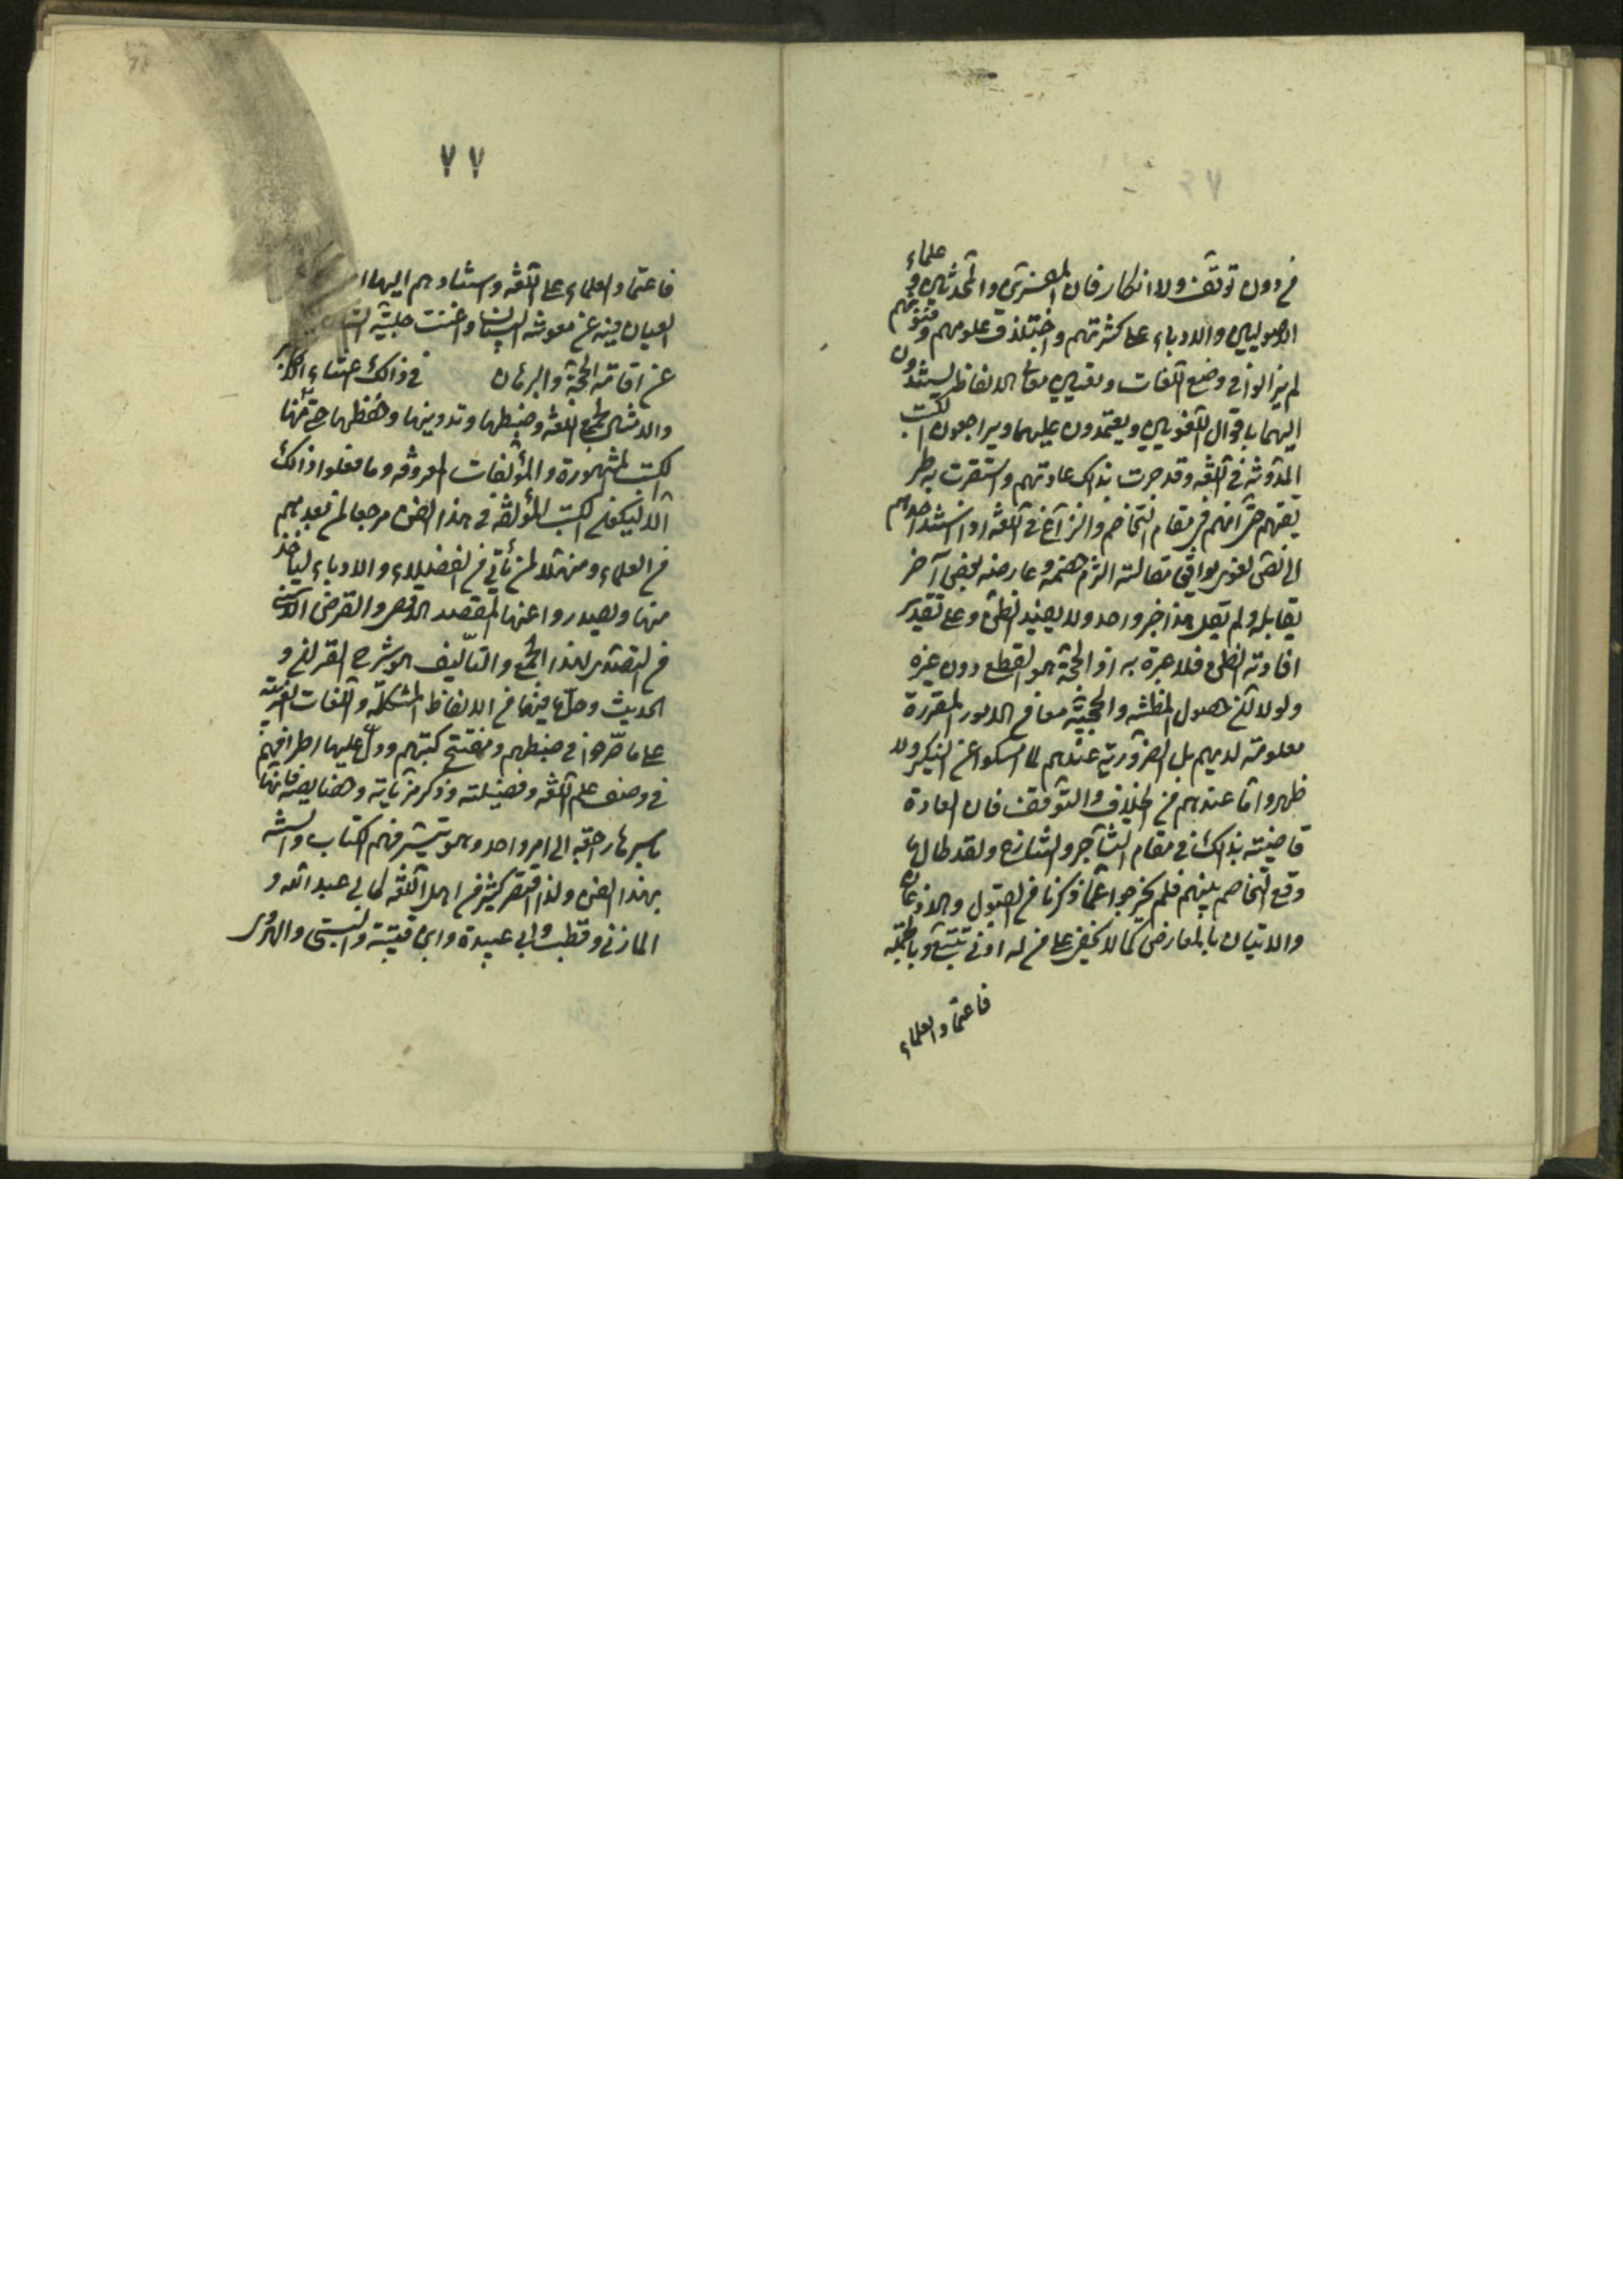 من دون توقف ولا انكار فان المفسرين والمحدثين و علماء
الاصوليين والادباء على كثرتهم واختلاف علومهم وفنونهم
لم يزالوا في وضع اللغات وتعيين معاني الالفاظ يستندون
اليهما باقوال اللغويين ويعتمدون عليهما ويراجعون الكتب
المدونة في اللغة وقد جرت بذلك عادتهم واستقرت به طر
يقتهم حتى انهم في مقام التخاصم والنزاع في اللغة اذا استند احدهم
الى نص لغوي يوافق مقالته الزم خصمه و عارضه بنص آخر
يقابله ولم يقل هذا خبر واحد ولا يفيد الظن وعلى تقدير
افادته الظن فلا عبرة به اذ الحجة هو القطع دون غيره
ولولا لكن حصول المظنة والحجية معا من الامور المقررة
معلومة لديهم بل الضرورية عندهم لما امسكوا عن النكير ولا
ظهروا ما عندهم من الخلاف والتوقف فان العادة
قاضية بذلك في مقام التشاجر والتنازع ولقد طال ما
وقع التخاصم بينهم فلم يخرجوا عما ذكرنا من القبول والاذعان
والاتيان بالمعارض كما لا يخفى على من له ادنى تتبع وبالجملة
فاعتماد العلماء
٧٧
فاعتماد العلماء على اللغة واستنادهم اليها
العيان فيه عن معونة البيان واغنت جلية
عن اقامة الحجة والبرهان في ذلك اعتناء الاكابر
والاماثل بجمع اللغة وضبطها وتدوينها وحفظها حتى
الكتب المشهورة والمؤلفات المعروفة وما فعلوا ذلك
الا ليكون الكتب المؤلفة في هذا الفن مرجعا لمن بعدهم
من العلماء ومنهلا لمن يأتي من الفضلاء والادباء لياخذ
منها ويصدروا عنها المقصد الاقصى والغرض الاسنى
من التصدي لهذا الجمع والتأليف هو شرح القرآن و
الحديث وحل ما فيهما من الالفاظ المشكلة واللغات الغريبة
على ما صرحوا في ضبطهم ومفتتح كتبهم ودل عليها اطرافهم
في وصف علم اللغة وفضيلته وذكر مزاياته وخصايصه فانها
باسرها راجعة الى امر واحد وهو تيسر فهم الكتاب والسنة
بهذا الفن ولذا اقتصر كثير من اهل اللغة كابي عبد الله و
المازني وقطب وابي عبيدة وابن قتيبة والبستي والهروي